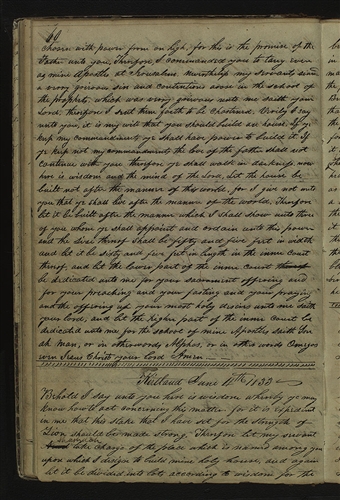 60
chosen with power from on high for this is the promise of the
Father unto you, Therefore I commanded you to tarry even
as mine Apostles at Jerusalem. Nevertheless my servants sined
a very grievous sin and contentions arose in the school of
the prophets which was very grievous unto me saith your
Lord, therefore I sent them forth to be chastened, Verily I say
unto you, it is my will that you should build an house if ye
kep my commandments ye shall have power to build it If
ye kep not my commandments the love of the father shall not
continue with you therefore ye shall walk in darkness now
here is wisdom and the mind of the Lord, let the house be
built not after the manner of this world, for I give not unto
you that ye shall live after the manner of the world, Therefore
let it be built after the manner which I shall show unto three
of you whom ye shall appoint and ordain unto this power
and the size thereof shall be fifty and five feet in width
and let it be sixty and five feet in length in the inner court
thereof, and let the lower part of the inner court thereof
be dedicated unto me for your sacrament offering and
for your preaching and your fasting and your praying
and the offering up your most holy desires unto me saith
your Lord, and let the higher part of the inner court be
dedicated unto me, for the school of mine Apostles saith Son
ah man, or in otherwords Alphus, or in other words Omegos
even Jesus Christ your Lord Amen
Kirtland June 1833
Behold I say unto you here is wisdom whereby ye may
know how to act concerning this matter for it is expedient
in me that this stake that I have set for the strength of
Zion should be made strong, Therefore let my servant
take charge of the place which is named among you
upon which I design to build mine holy house, and again
let it be divided into lots according to wisdom for the